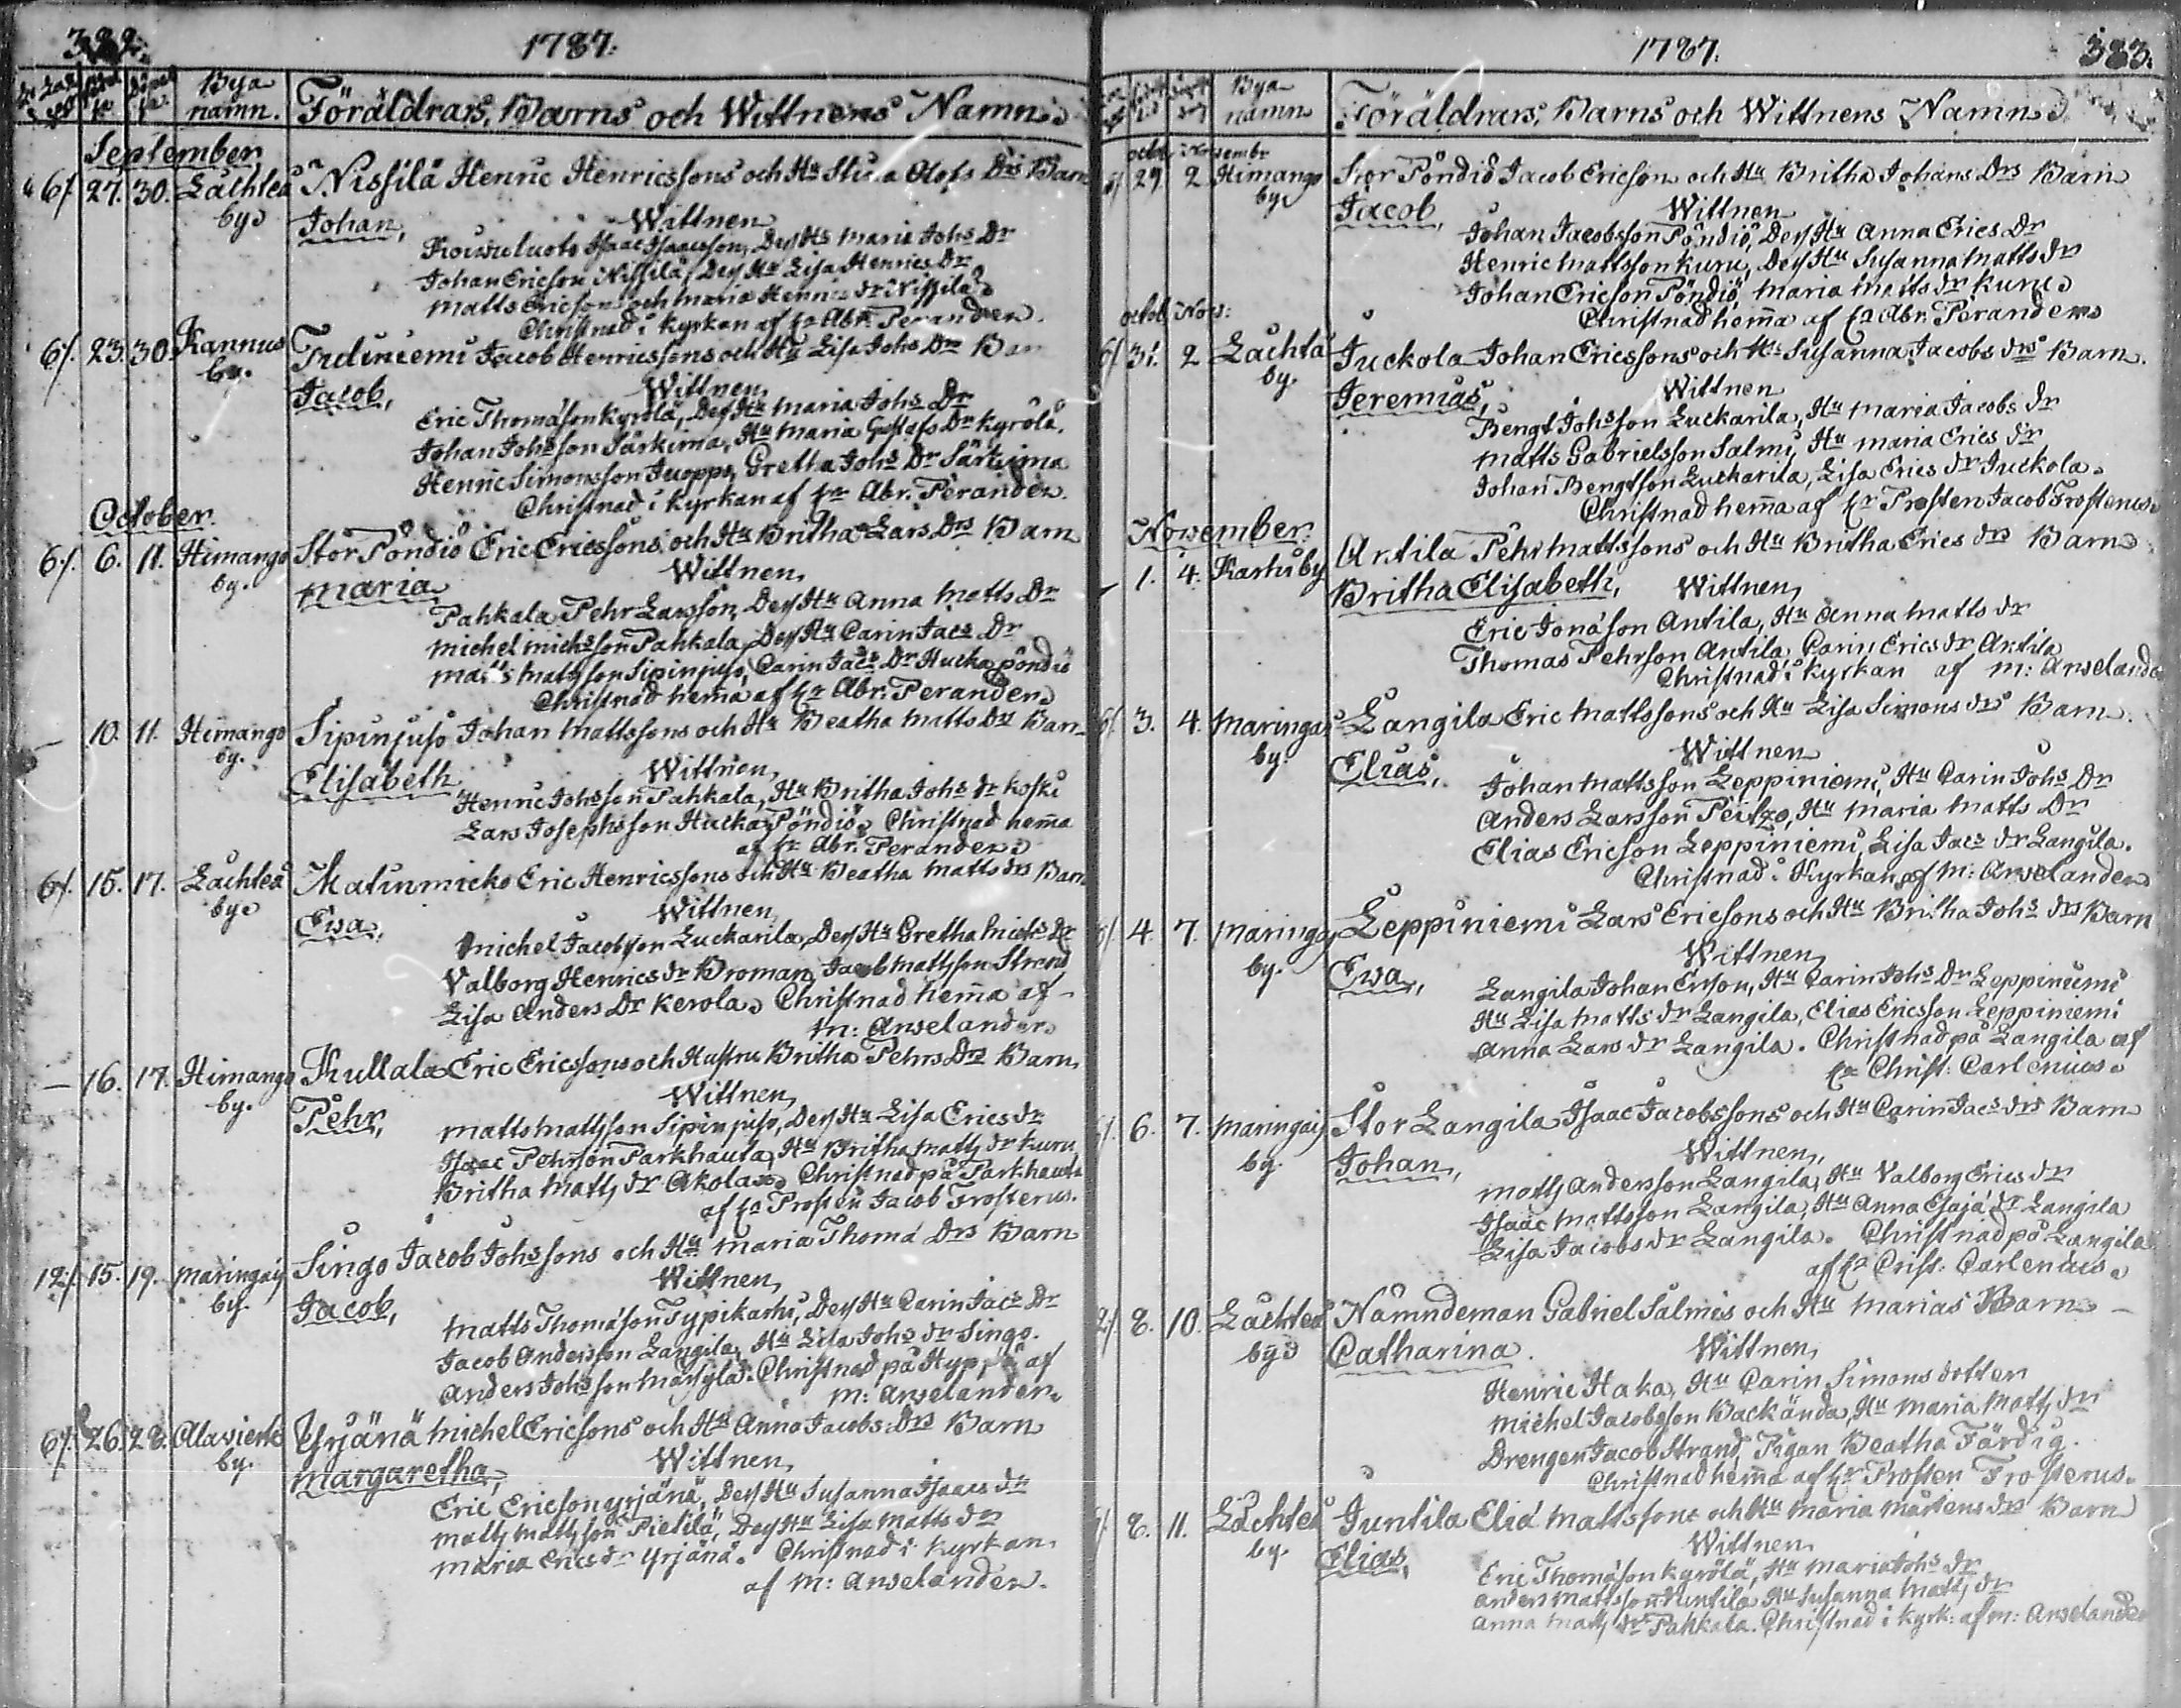 1787.
Bya namn. Föräldrars, Barns och Wittnens Namn.
September
6/ 27. 30. Lachteå by Nissilä Henric Henricssons och Hu Olofs Drs Barn
Johan, Wittnen
Isaac Isaacsson, Dess Hu Maria Johs Dr
Johan Ericson Nissilä, Dess Hu Lisa Henrics Dr
Matts Ericson och Maria Henrics dr Nissilä
Christnad i Kyrkan af Hr Abr. Perander.
6/. 23. 30. Kannus by. Jacob Henricssons och Hu Lisa Johs Drs Barn
Jacob, Wittnen
Eric Thomasson Kyrölä, Dess Hu Maria Johs Dr
Johan Johsson Särkima, Hu Maria Gustafs Dr Kyrölä.
Henric Simonsson Juoppo, Gretha Johs Dr Särkima
Christnad i Kyrkan af Hr Abr. Perander.
October.
6/. 6. 11. Himango by. Stor Pöndiö Eric Ericssons och Hu Britha Lars Drs Barn
Maria Wittnen
Pahkala Pehr Larsson, Dess Hu Anna Matts Dr
Michel Michsson Pahkala, Dess Hu Carin Jacs Dr
Matts Mattsson Sipinjuso, Carin Jacs Dr Hucka pöndiö
Christnad hema af Hr Abr. Perander
— 10. 11. Himango by. Sipinjuso Johan Mattssons och Hu Beatha Matts Drs Barn
Elisabeth Wittnen,
Henric Johsson Pahkala, Hu Britha Johs dr Koski
Lars Josephsson Hucka Pöndiö. Christnad hema
af Hr Abr. Perander
6/. 15. 17. Lachteå by Matinmicko Eric Henricssons och Hu Beatha Matts drs Barn
Ewa, Wittnen
Michel Jacobsson Luckarila, Dess Hu Gretha Michs Dr
Valborg Henrics dr Broman, Jacob Mattsson Strand
Lisa Anders Dr Kerola. Christnad hema af
M: Anselander.
— 16. 17. Himango by. Kullala Eric Ericssons och Hustru Britha Pehrs Drs Barn
Pehr, Wittnen
Matts Mattsson Sipinjuso, Dess Hu Lisa Erics dr
Isaac Pehrsson Parkhauta, Hu Britha Matts dr Kuru
Britha Matts dr Akola. Christnad på Parkhauta
af Hr Prosten Jacob Frosterus.
12/. 15. 19. Maringais by. Singo Jacob Johssons och Hu Maria Thoma Drs Barn
Jacob, Wittnen
Matts Thomason Typikarhi, Dess Hu Carin Jacs Dr
Jacob Andersson Langila, Hu Lisa Johs dr Singo.
Anders Johsson Marsylä. Christnad på af
M: Anselander.
6/. 26. 28. Alavieska by. Yrjänä Michel Ericsons och Hu Anna Jacobs Drs Barn
Margaretha, Wittnen
Eric Ericson Yrjänä, Dess Hu Susanna Isaacs dr
Matts Mattsson Pietilä, Dess Hu Lisa Matts dr
Maria Erics dr Yrjänä. Christnad i Kyrkan
af M: Anselander.
1787. 383.
Bya namn Föräldrars, Barns och Wittnens Namn
octbr Novembr
6/ 29 2 Himango by. Stor Pöndiö Jacob Ericson och Hu Britha Johans Drs Barn
Jacob, Wittnen
Johan Jacobsson Pöndiö, Dess Hu Anna Erics Dr
Henric Mattsson Kuru, Dess Hu Susanna Matts dr
Johan Ericson Pöndiö, Maria Matts dr Kuru
Christnad hema af Hr Abr. Perander
octob Nov:
6/ 31. 2 Lachteå by. Juckola Johan Ericssons och Hu Susanna Jacobs drs Barn.
Jeremias, Wittnen
Bengt Johsson Luckarila, Hu Maria Jacobs dr
Matts Gabrielsson Salmi, Hu Maria Erics dr
Johan Bengtsson Luckarila, Lisa Erics dr Juckola.
Christnad hema af Hr Prosten Jacob Frosterus.
November.
— 1. 4. Karhi by Antila Pehr Mattssons och Hu Britha Erics drs Barn
Britha Elisabeth, Wittnen
Eric Jonason Antila, Hu Anna Matts dr
Thomas Pehrson Antila, Carin Erics dr Antila
Christnad i Kyrkan af M: Anselander
6/ 3. 4. Maringais by. Langila Eric Mattssons och Hu Lisa Simons drs Barn.
Elias, Wittnen
Johan Mattsson Leppiniemi, Hu Carin Johs Dr
Anders Larsson Peitzo, Hu Maria Matts Dr
Elias Ericson Leppiniemi, Lisa Jacs dr Langila.
Christnad i Kyrkan af M: Anselander
6/ 4. 7. Maringais by. Leppiniemi Lars Ericsons och Hu Britha Johs drs Barn
Ewa, Wittnen
Langila Johan Erson, Hu Carin Johs Dr Leppiniemi
Hu Lisa Matts dr Langila, Elias Ericsson Leppiniemi
Anna Lars dr Langila. Christnad på Langila af
Hr Christ: Carlenius.
6. 7. Maringais by. Stor Langila Isaac Jacobssons och Hu Carin Jacs drs Barn
Johan, Wittnen,
Matts Andersson Langila, Hu Valborg Erics dr
Isaac Mattsson Langila, Hu Anna Esaja dr Langila
Lisa Jacobs dr Langila. Christnad på Langila
af Hr Crist: Carlenius.
8. 10. Lachteå by Nämndeman Gabriel Salmis och Hu Marias Barn
Catharina. Wittnen
Henric Haka, Hu Carin Simons dotter
Michel Jacobsson Backända, Hu Maria Matts dr
Drengen Jacob Strand, Pigan Beatha Färdig.
Christnad hema af Hr Prosten Frosterus.
8. 11. Lachteå by. Juntila Elia Mattssons och Hu Maria Mårtens drs Barn
Elias, Wittnen
Eric Thomason Kyrölä, Hu Maria Johs dr
Anders Mattsson Juntila Hu Susanna Matts dr
Anna Matts dr Pahkala. Christnad i Kyrk: af M: Anselander